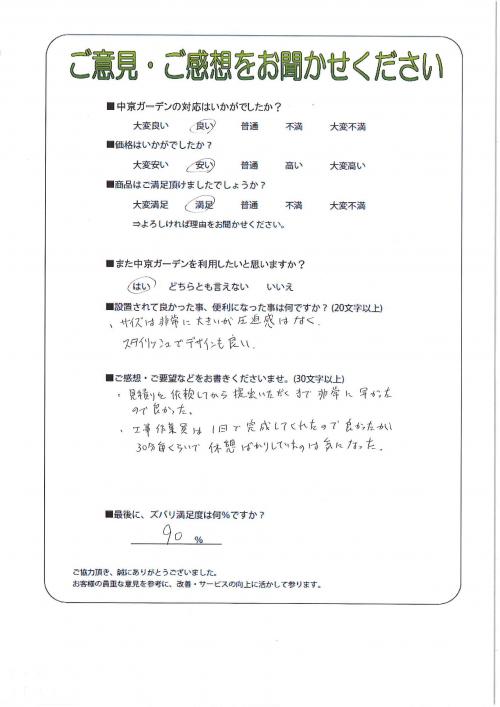 ご意見・ご感想をお聞かせください
■中京ガーデンの対応はいかがでしたか？
大変良い 良い 普通 不満 大変不満
■価格はいかがでしたか？
大変安い 安い 普通 高い 大変高い
■商品はご満足頂けましたでしょうか？
大変満足 満足 普通 不満 大変不満
⇒よろしければ理由をお聞かせください。
■また中京ガーデンを利用したいと思いますか？
はい どちらとも言えない いいえ
■設置されて良かった事、便利になった事は何ですか？(20文字以上)
、サイズは非常に大きいが圧迫感はなく、
スタイリッシュでデザインも良い。
■ご感想・ご要望などをお書きくださいませ。(30文字以上)
・見積りを依頼してから提出いただくまで非常に早かった
ので良かった。
・工事作業員は1日で完成してくれたので良かったが、
30分毎くらいで休憩ばかりしていたのは気になった。
■最後に、ズバリ満足度は何％ですか？
90 %
ご協力頂き、誠にありがとうございました。
お客様の貴重な意見を参考に、改善・サービスの向上に活かして参ります。